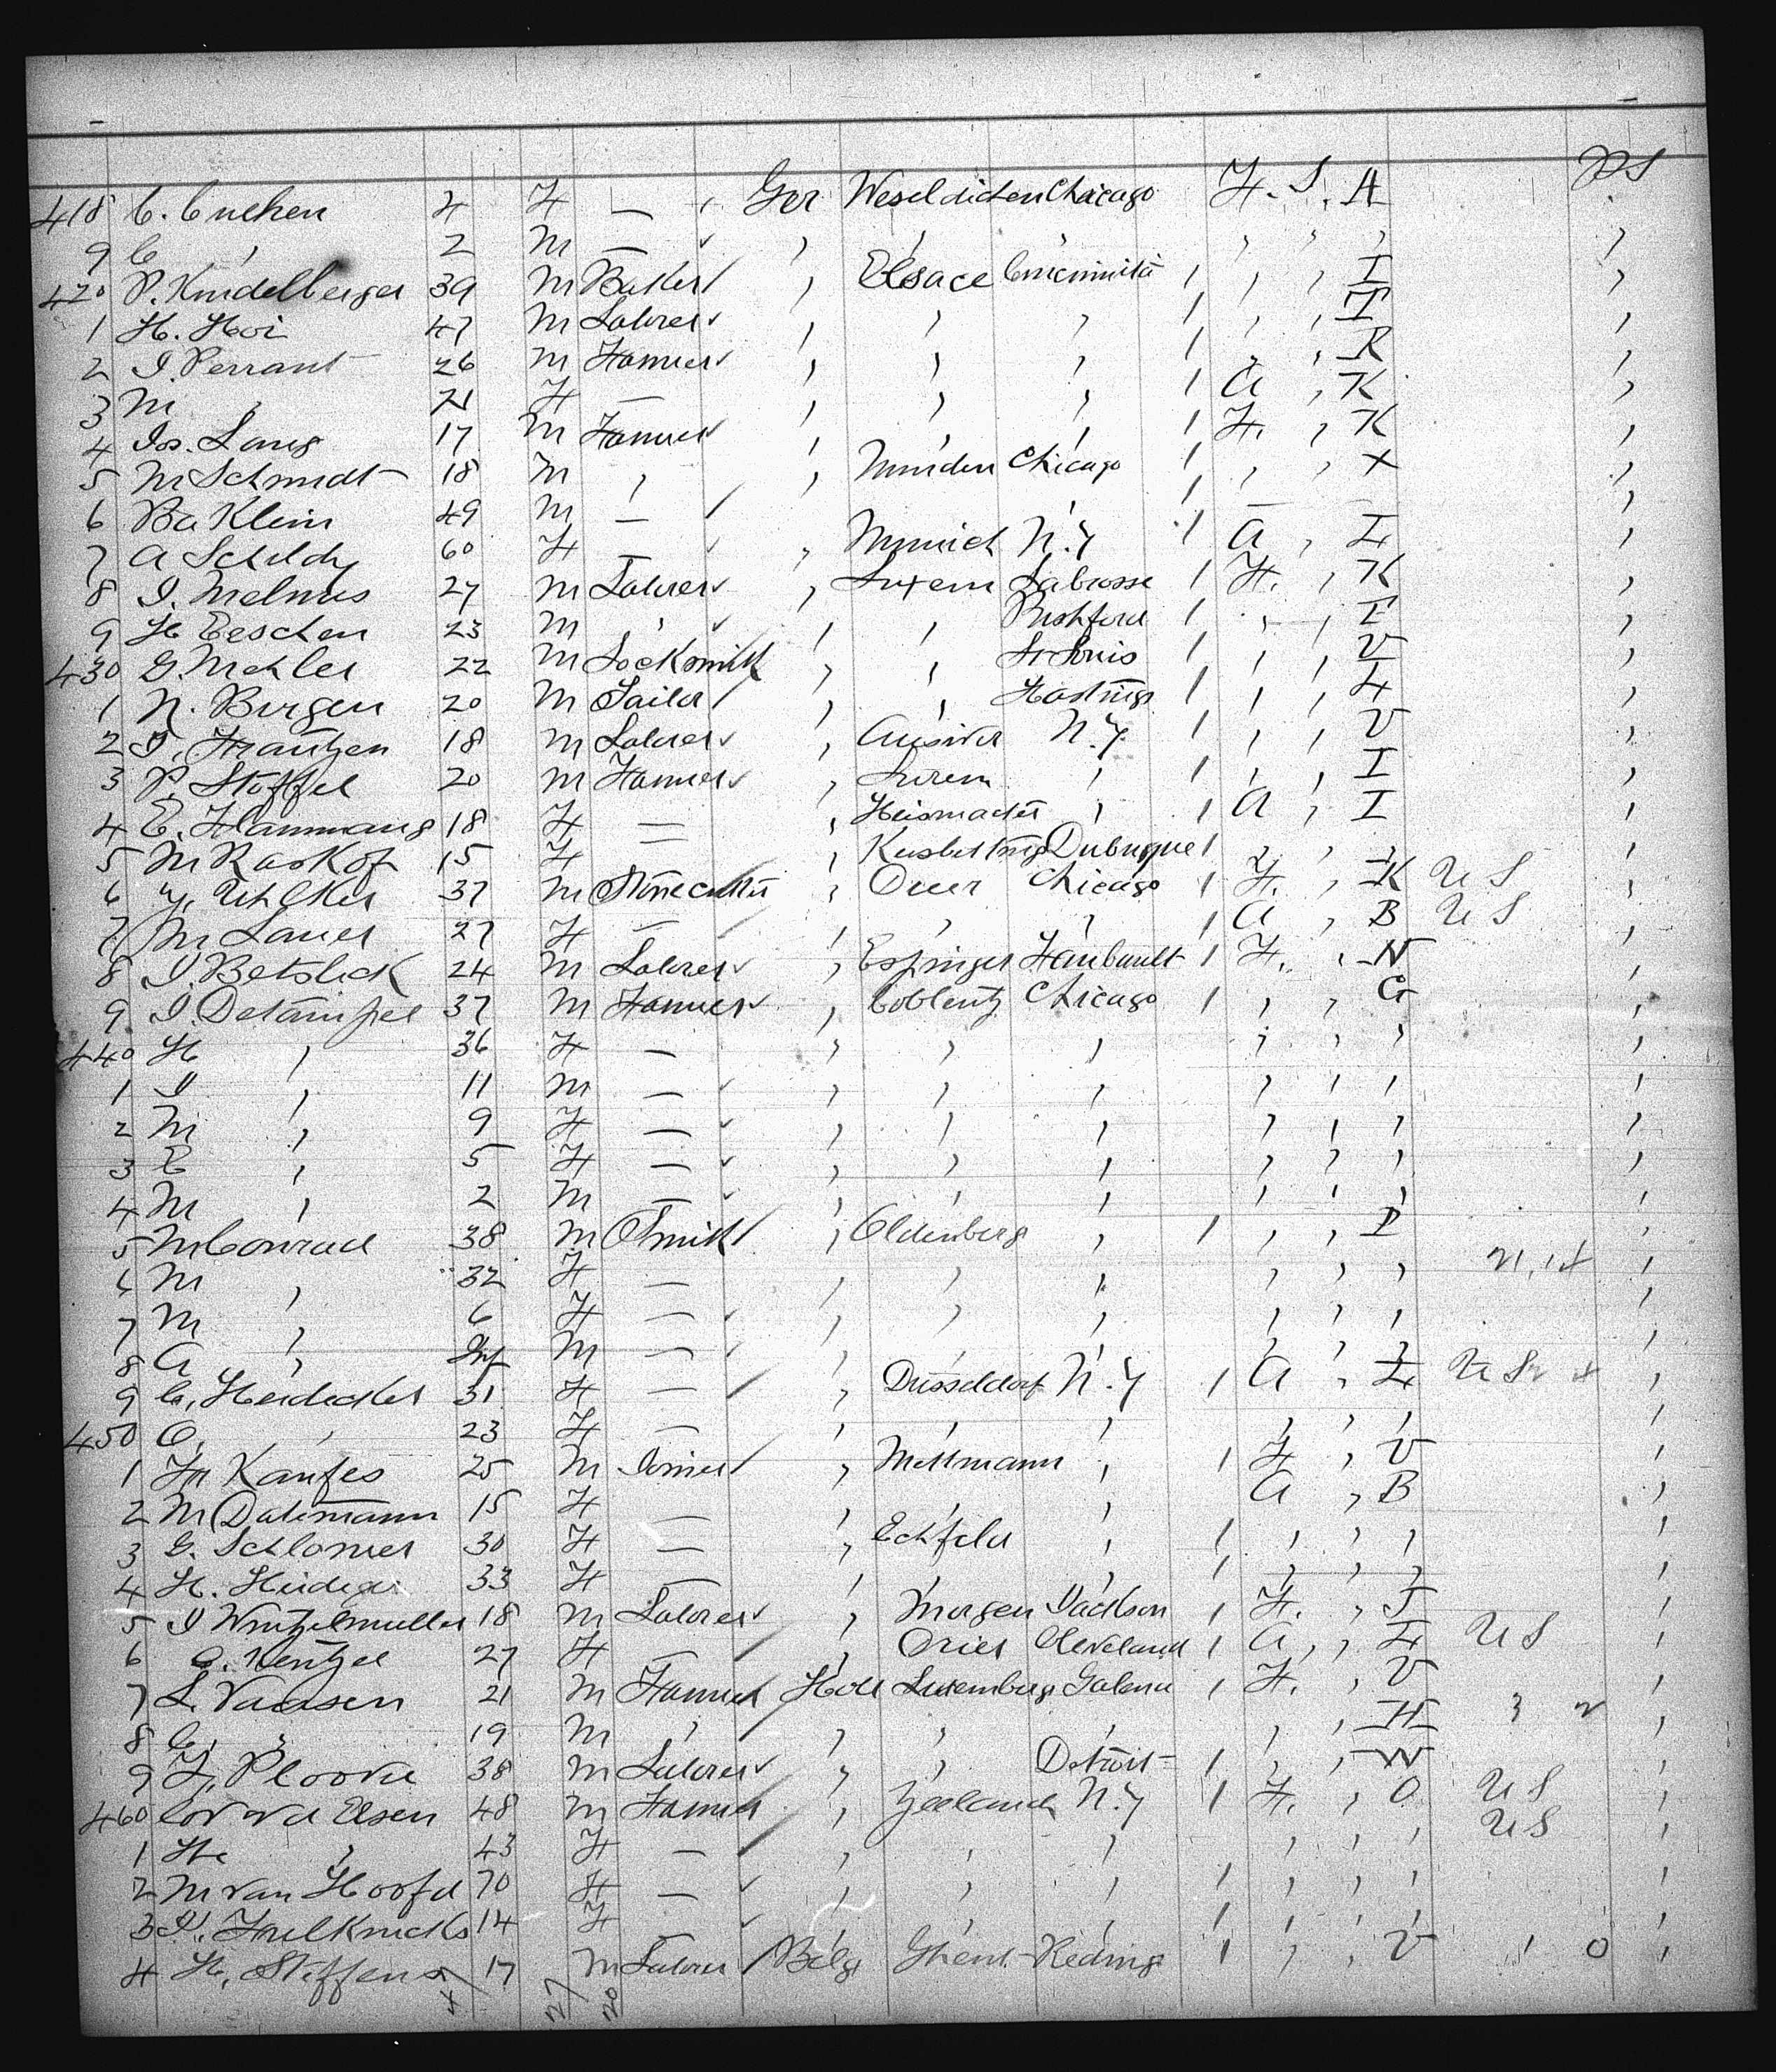 P S
418 C. Cuehen 4 F — Ger Weseldichen Chicago F. S. A
9 C , 2 M — , , , , , , ,
420 P. Kindelberger 39 M Baker , Elsace Cincinnita 1 , , I ,
1 H. Hoi 47 M Labrer , , , 1 , , I ,
2 J. Perrant 26 M Farmer , , , 1 , , K ,
3 M , 21 F — , , , 1 A , K ,
4 Jos. Lang 17 M Farmer , , , 1 F. , K ,
5 M Schmidt 18 M , , Minden Chicago 1 , , X ,
6 Ba Klein 49 M — , 1 ,
7 A Schildy 60 F — , Munich N.Y 1 A , L ,
8 J. Melmus 27 M Labrer , Luxem Labrosse 1 F. , K ,
9 H Eeschen 23 M , , , Rishford 1 , , I ,
430 G. Mehler 22 M Locksmith , , St Louis 1 , , V ,
1 N. Birgen 20 M Tailor , , Hastings 1 , , L ,
2 J. Frantzen 18 M Labrer , N.Y. 1 , , V ,
3 P. Stoffel 20 M Farmer , Luxem , 1 , , I ,
4 E. Hammang 18 F — , , 1 A , I ,
5 M Raskof 15 F — , Dubuque 1 , , , ,
6 37 M Stonecutter , Chicago 1 F. , K U S ,
7 M Lauer 27 F — , , , 1 A , B U S ,
8 J. Betslick 24 M Labrer , Espinger Faribault 1 F. , N ,
9 J. Detampel 37 M Farmer , Coblentz Chicago 1 , , G ,
440 H , 36 F — , , , , , , ,
1 J , 11 M — , , , , , , ,
2 M , 9 F — , , , , , , ,
3 E , 5 F — , , , , , , ,
4 M , 2 M — , , , , , , ,
5 M Conrad 38 M Smith , Oldenberg , 1 , , P ,
6 M , 32 F — , , , , , , ,
7 M , 6 F — , , , , , , ,
8 A , Inf M — , , , , , , ,
9 C. Heidecker 31 F — , Dusseldorf N.Y 1 A , L ,
450 O. , 23 F — , , , , , , ,
1 Kanfes 25 M Joiner , Mettmann , 1 F , V ,
2 M Dahmann 15 F — , , , A , B ,
3 G. Schlomer 30 F — , Eckfeld , 1 , , , ,
4 H. 33 F — , , , 1 , , , ,
5 J Wintzelmuller 18 M Labrer , Morgen Jackson 1 F. , J ,
6 C. Kentzel 27 F — , Cleveland 1 A , L U S ,
7 L. Vaasen 21 M Farmer Holl Luxemburg Galena 1 F. , V ,
8 C. , 19 M , , , , , H ,
9 F. Ploovie 38 M Labrer , , Detroit 1 , , W ,
460 Cor v d Elsen 48 M Farmer , Zeeland N.Y 1 F. , O U S ,
1 He , 43 F — , , , , , , U S ,
2 M van Hoofd 70 F — , , , 1 , , , ,
3 14 F , , , 1 , , , ,
4 H. Steffens 17 M Labrer Belg Ghent Reding 1 , , V , O ,
27 20